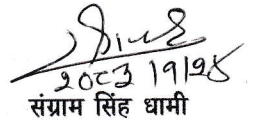 २०८३।१।२४
संग्राम सिंह धामी